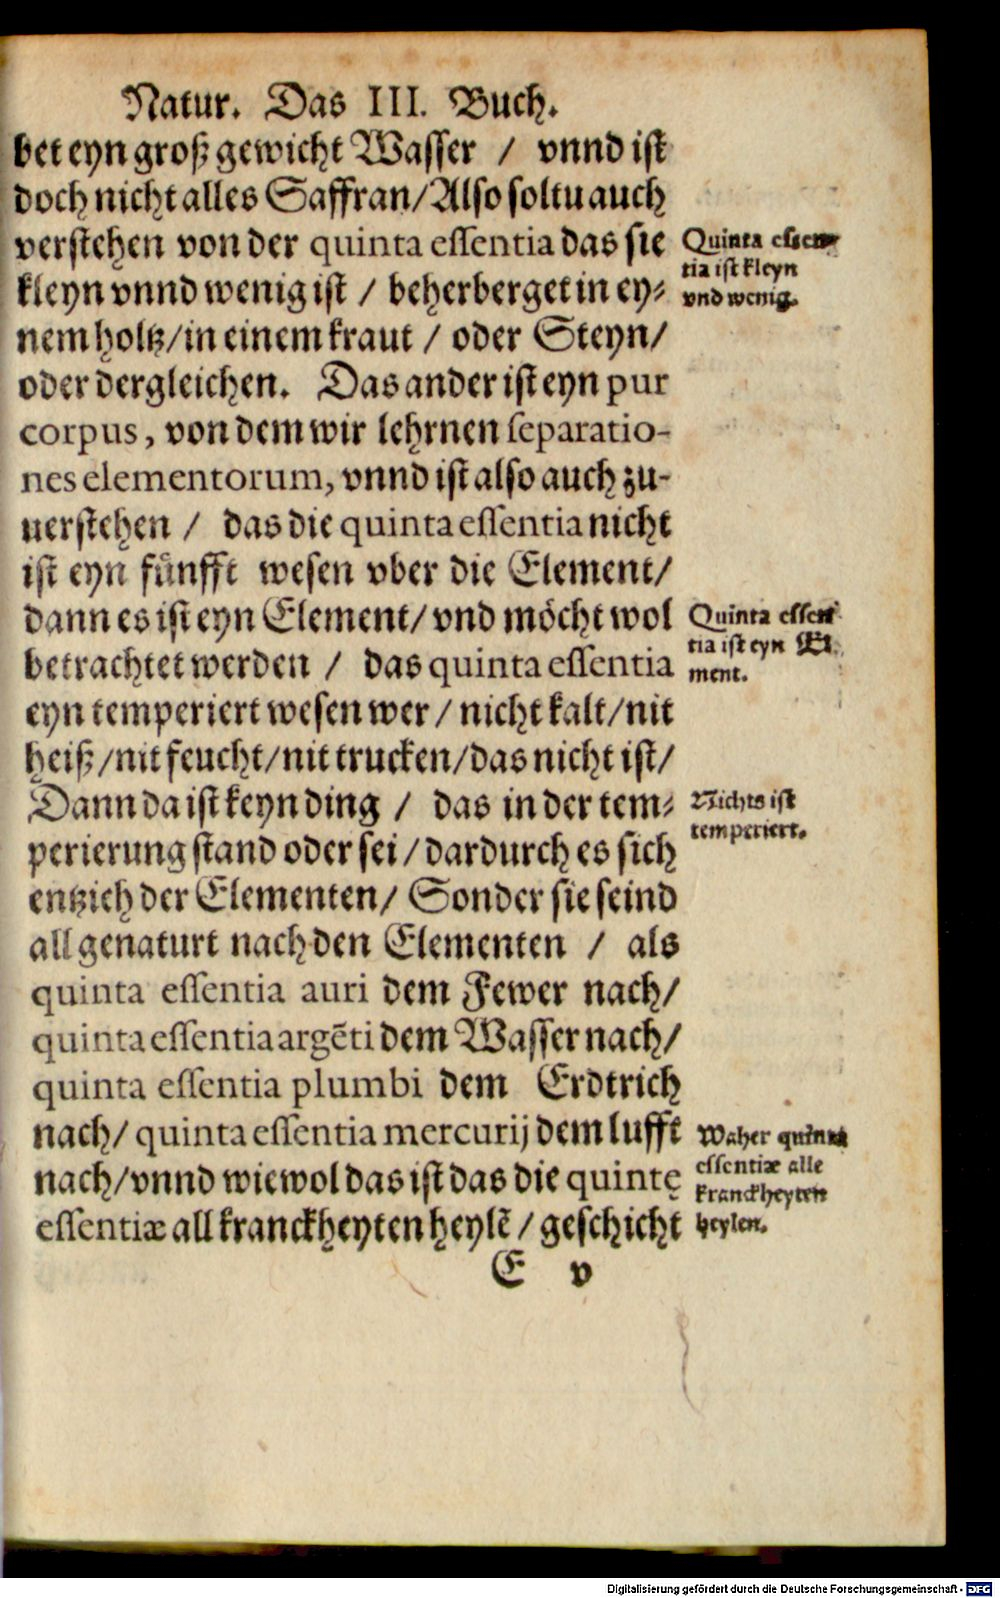 Natur. Das III. Buch.
bet eyn groß gewicht Wasser / vnnd ist
doch nicht alles Saffran/Also soltu auch
verstehen von der quinta essentia das sie
kleyn vnnd wenig ist / beherberget in ey⸗
nem holtz/in einem kraut / oder Steyn/
oder dergleichen. Das ander ist eyn pur
corpus, von dem wir lehrnen separatio-
nes elementorum, vnnd ist also auch zu-
uerstehen / das die quinta essentia nicht
ist eyn fünfft wesen vber die Element/
dann es ist eyn Element/vnd möcht wol
betrachtet werden / das quinta essentia
eyn temperiert wesen wer/nicht kalt/nit
heiß/nit feucht/nit trucken/das nicht ist/
Dann da ist keyn ding / das in der tem⸗
perierung stand oder sei/dardurch es sich
entzieh der Elementen/ Sonder sie seind
all genaturt nach den Elementen / als
quinta essentia auri dem Fewer nach/
quinta essentia argẽti dem Wasser nach/
quinta essentia plumbi dem Erdtrich
nach/ quinta essentia mercurij dem lufft
nach/vnnd wiewol das ist das die quintę
essentiæ all kranckheyten heylẽ/geschicht
E v
Quinta essen⸗
tia ist kleyn
vnd wenig.
Quinta essen⸗
tia ist eyn Ele⸗
ment.
Nichts ist
temperiert.
Waher quinta
essentiæ alle
kranckheyten
heylen.
Digitalisierung gefördert durch die Deutsche Forschungsgemeinschaft - DFG